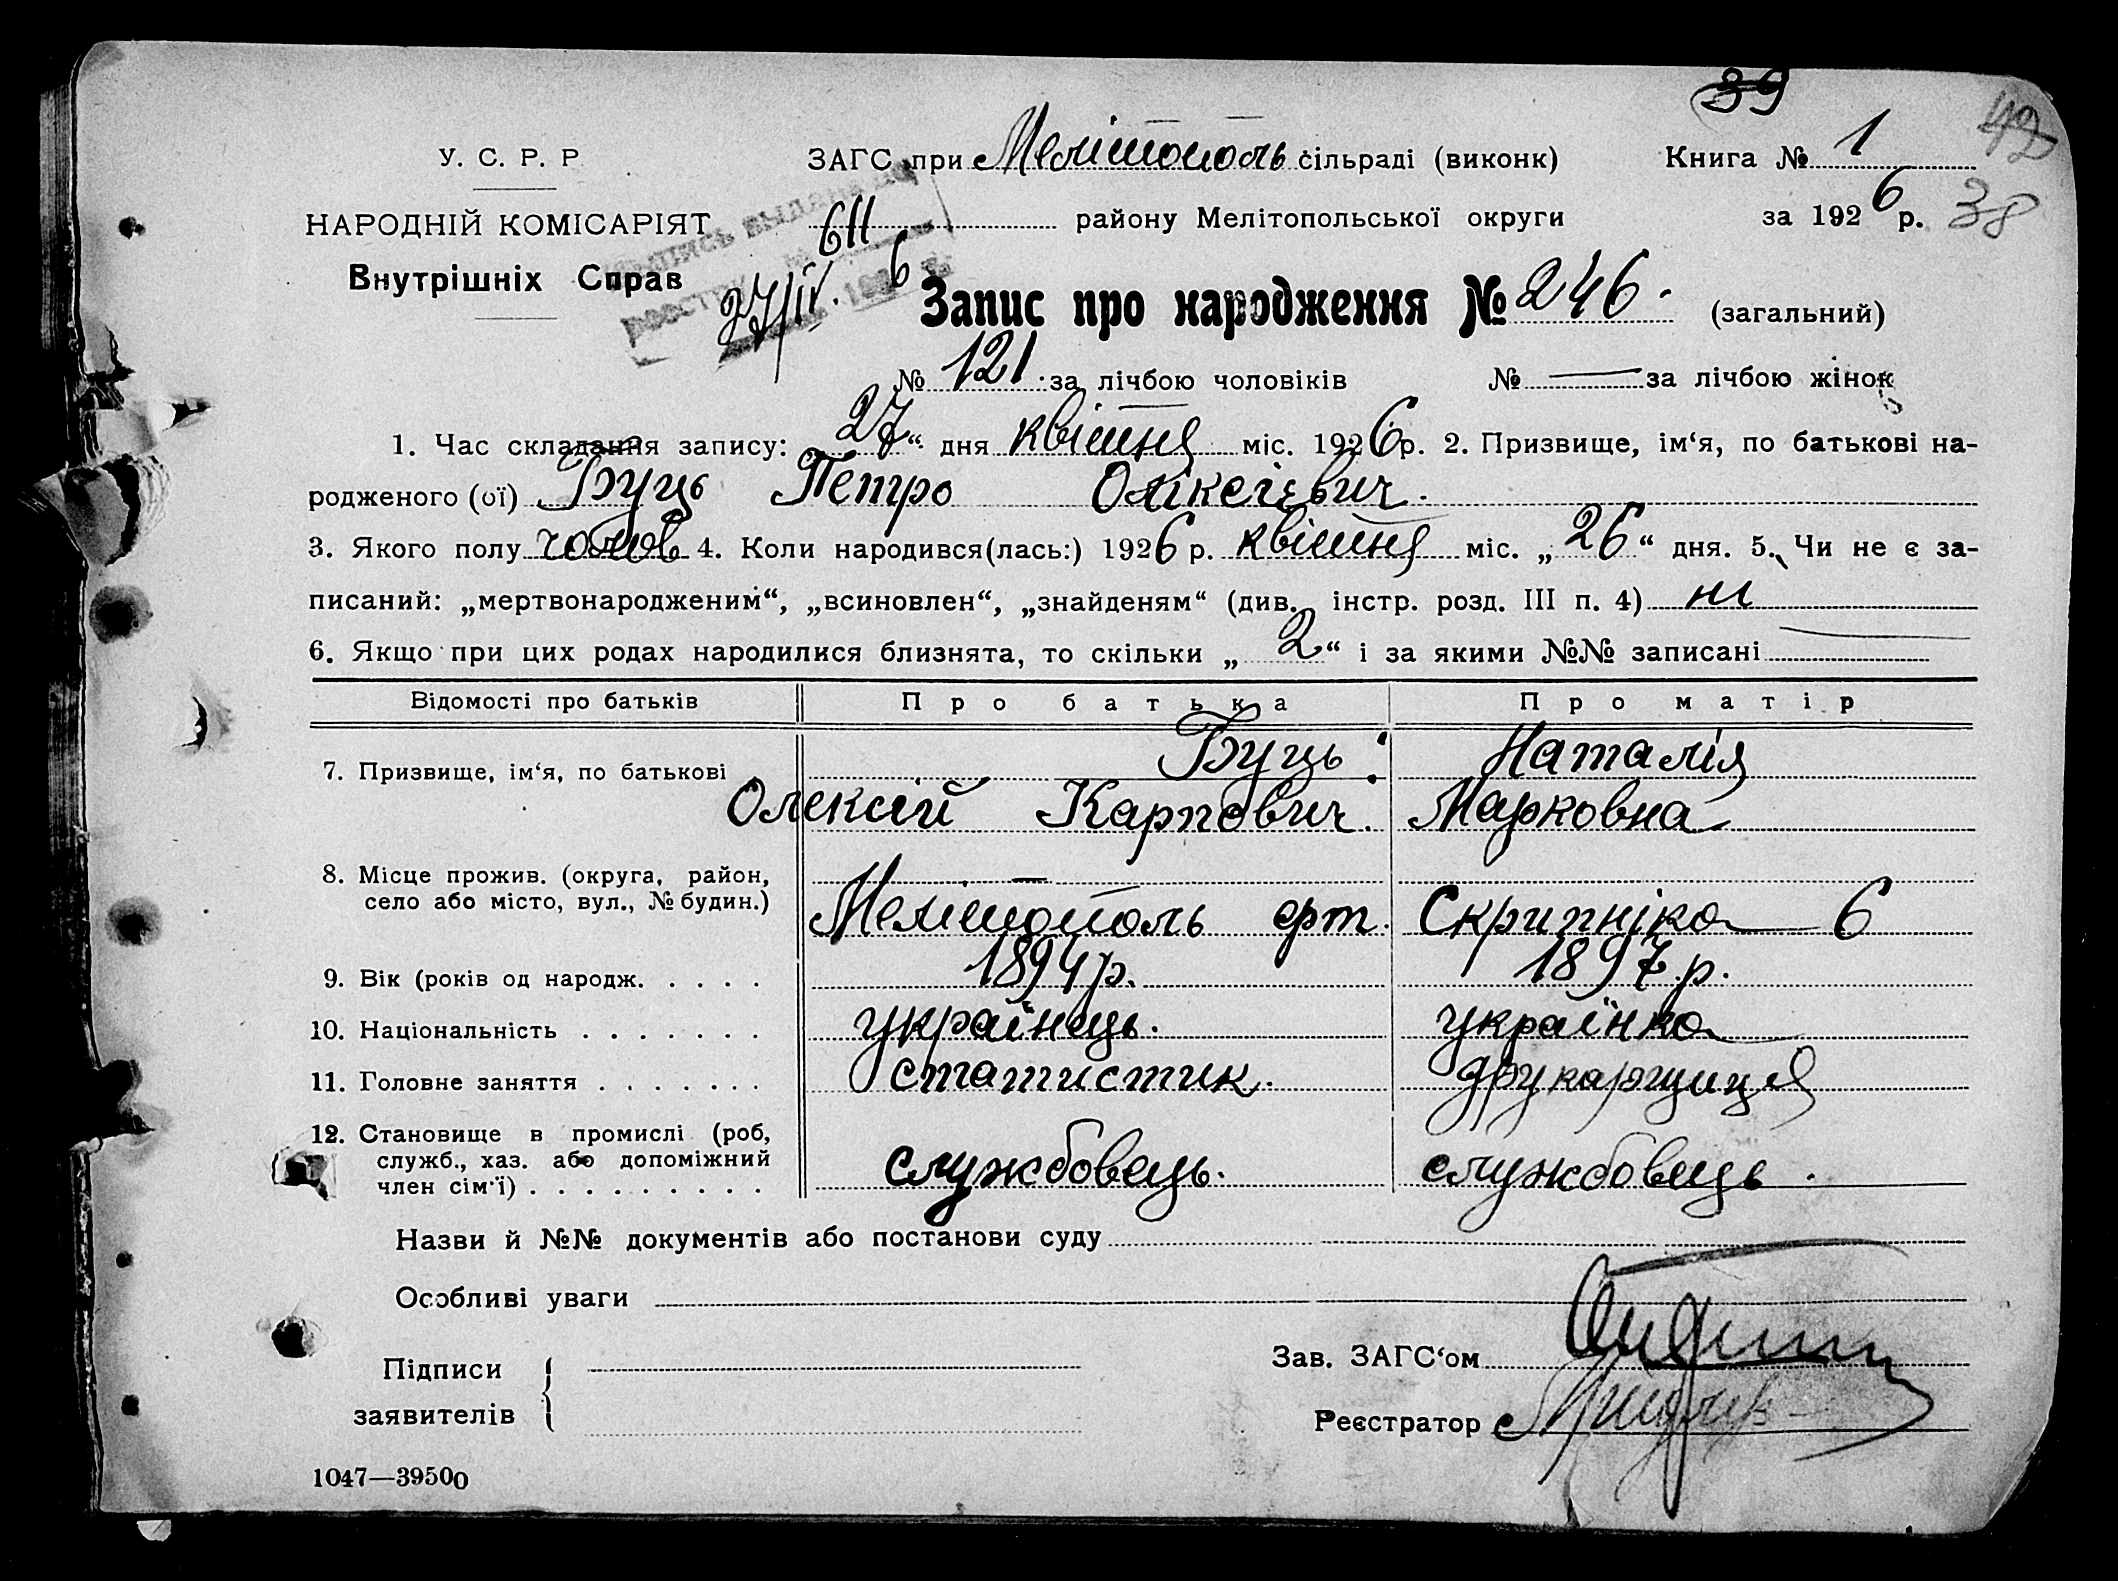 39
42
У. С. Р. Р. ЗАГС при Мелітополь сільраді (виконк) Книга № 1
НАРОДНІЙ КОМІСАРІЯТ 611 району Мелітопольської округи за 1926 р. 38
Внутрішніх Справ
27/IV. 6
Запис про народження № 246. (загальний)
№ 121 за лічбою чоловіків № — за лічбою жінок
1. Час складання запису: 27“ дня квітня міс. 1926 р. 2. Призвище, ім‘я, по батькові на-
родженого (ої) Буць Петро Оліксієвич.
3. Якого полу чолов 4. Коли народився(лась:) 1926 р. квітня міс. „26“ дня. 5. Чи не є за-
писаний: „мертвонародженим“, „всиновлен“, „знайденям“ (див. інстр. розд. III п. 4) ні
6. Якщо при цих родах народилися близнята, то скільки „2“ і за якими №№ записані —
Відомості про батьків Про батька Про матір
7. Призвище, ім‘я, по батькові Буць Наталія
Олексій Карпович. Марковна
8. Місце прожив. (округа, район,
село або місто, вул., № будин.) Мелітополь Скрипніка 6
9. Вік (років од народж. . . . . 1894 р. 1897 р.
10. Національність . . . . . . . українець. українка
11. Головне заняття . . . . . . . статистик. друкарщиця
12. Становище в промислі (роб,
служб., хаз. або допоміжний
член сім‘ї) . . . . . . . . . службовець. службовець.
Назви й №№ документів або постанови суду
Особливі уваги
Підписи Зав. ЗАГС‘ом
заявителів Реєстратор
1047—39500